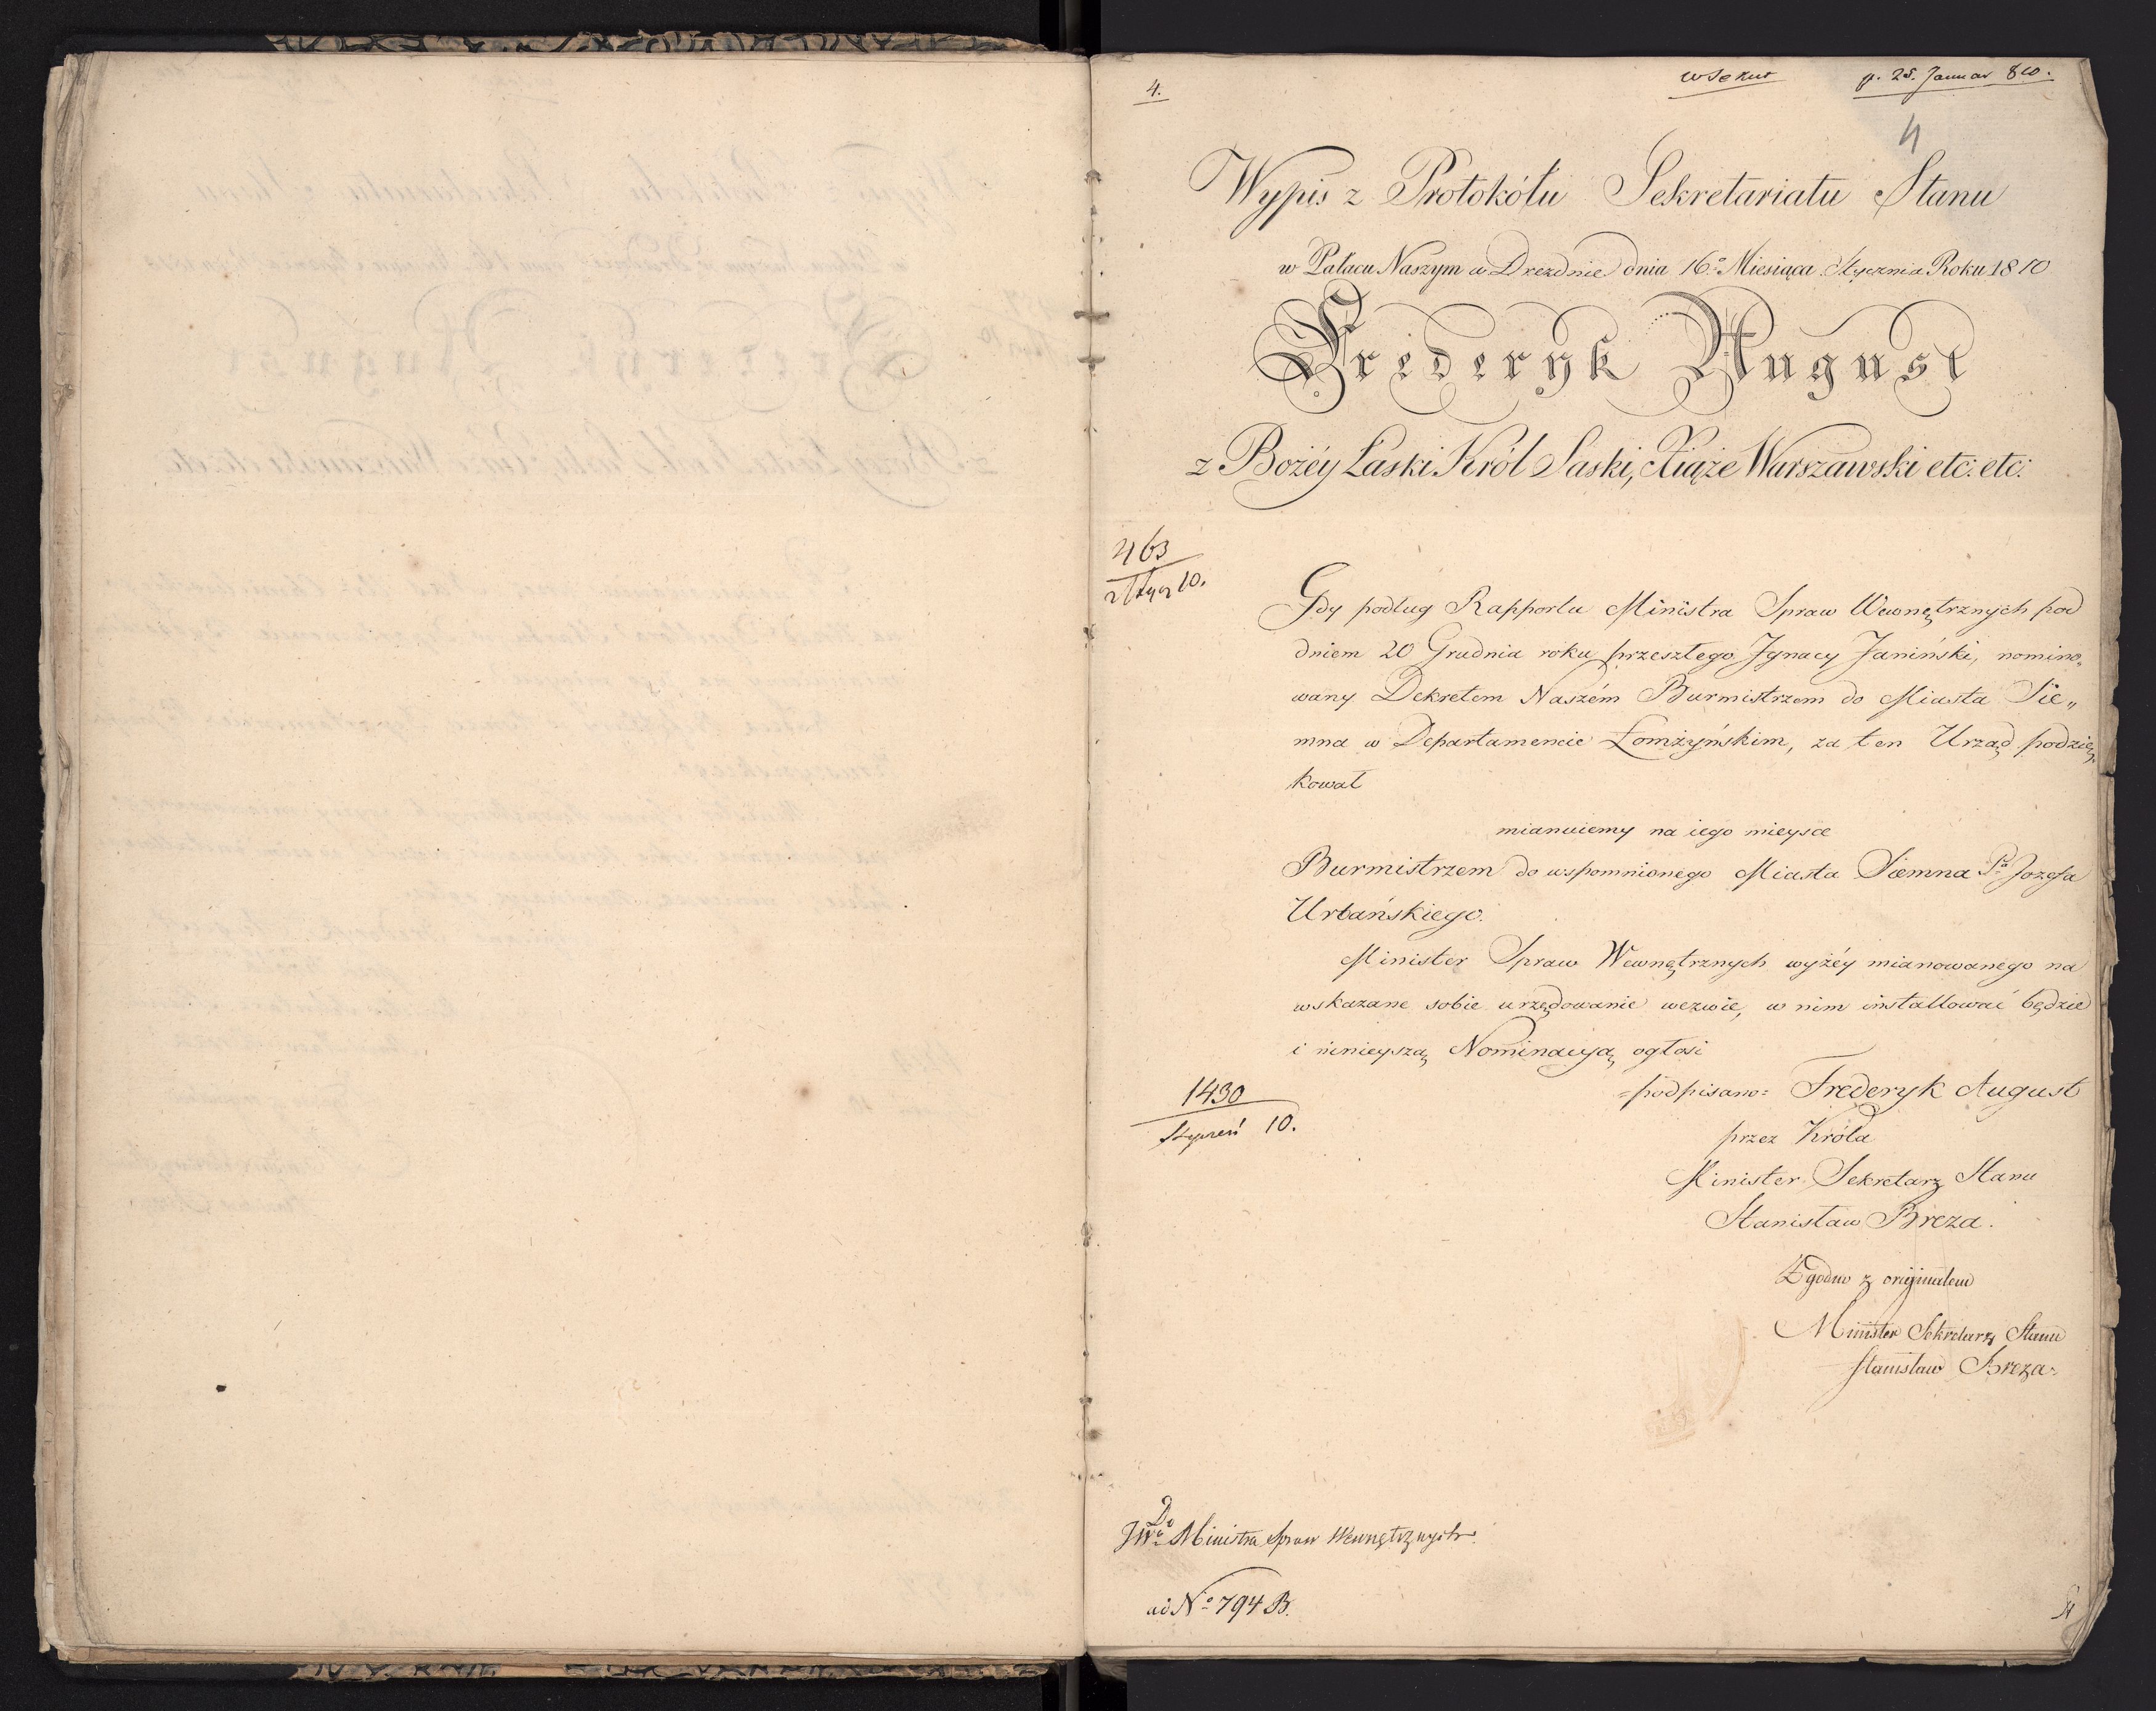 4.
p. 25. Januar 810.
4
Wypis z Protokółu Sekretariatu Stanu
w Pałacu Naszym w Dreznie dnia 16.o Miesiąca Stycznia Roku 1810
Frederyk August
z Bożéy Łaski Król Saski, Xiąże Warszawski etc: etc:
463
Stycz 10.
Gdy podług Rapportu Ministra Spraw Wewnętrznych pod
dniem 20 Grudnia roku przeszłego Jgnacy Janiński, nomino„
wany Dekretem Naszém Burmistrzem do Miasta Sie„
mna w Departamencie Łomżyńskim, za ten Urząd podzię„
kował
mianuiemy na iego mieysce
Burmistrzem do wspomnionego Miasta Siemna Pa Jozefa
Urbańskiego.
Minister Spraw Wewnętrznych wyżéy mianowanego na
wskazane sobie urzędowanie wezwie, w nim installować będzie
i ninieyszą Nominacyą ogłosi
=podpisano= Frederyk August
przez Króla
Minister Sekretarz Stanu
Stanisław Breza.
1430
Styczeń 10.
Zgodno z oryginałem
Minister Sekretarz Stanu
Stanisław Breza.
Do
JWo Ministra Spraw Wewnętrznych.
ad No 794 B.